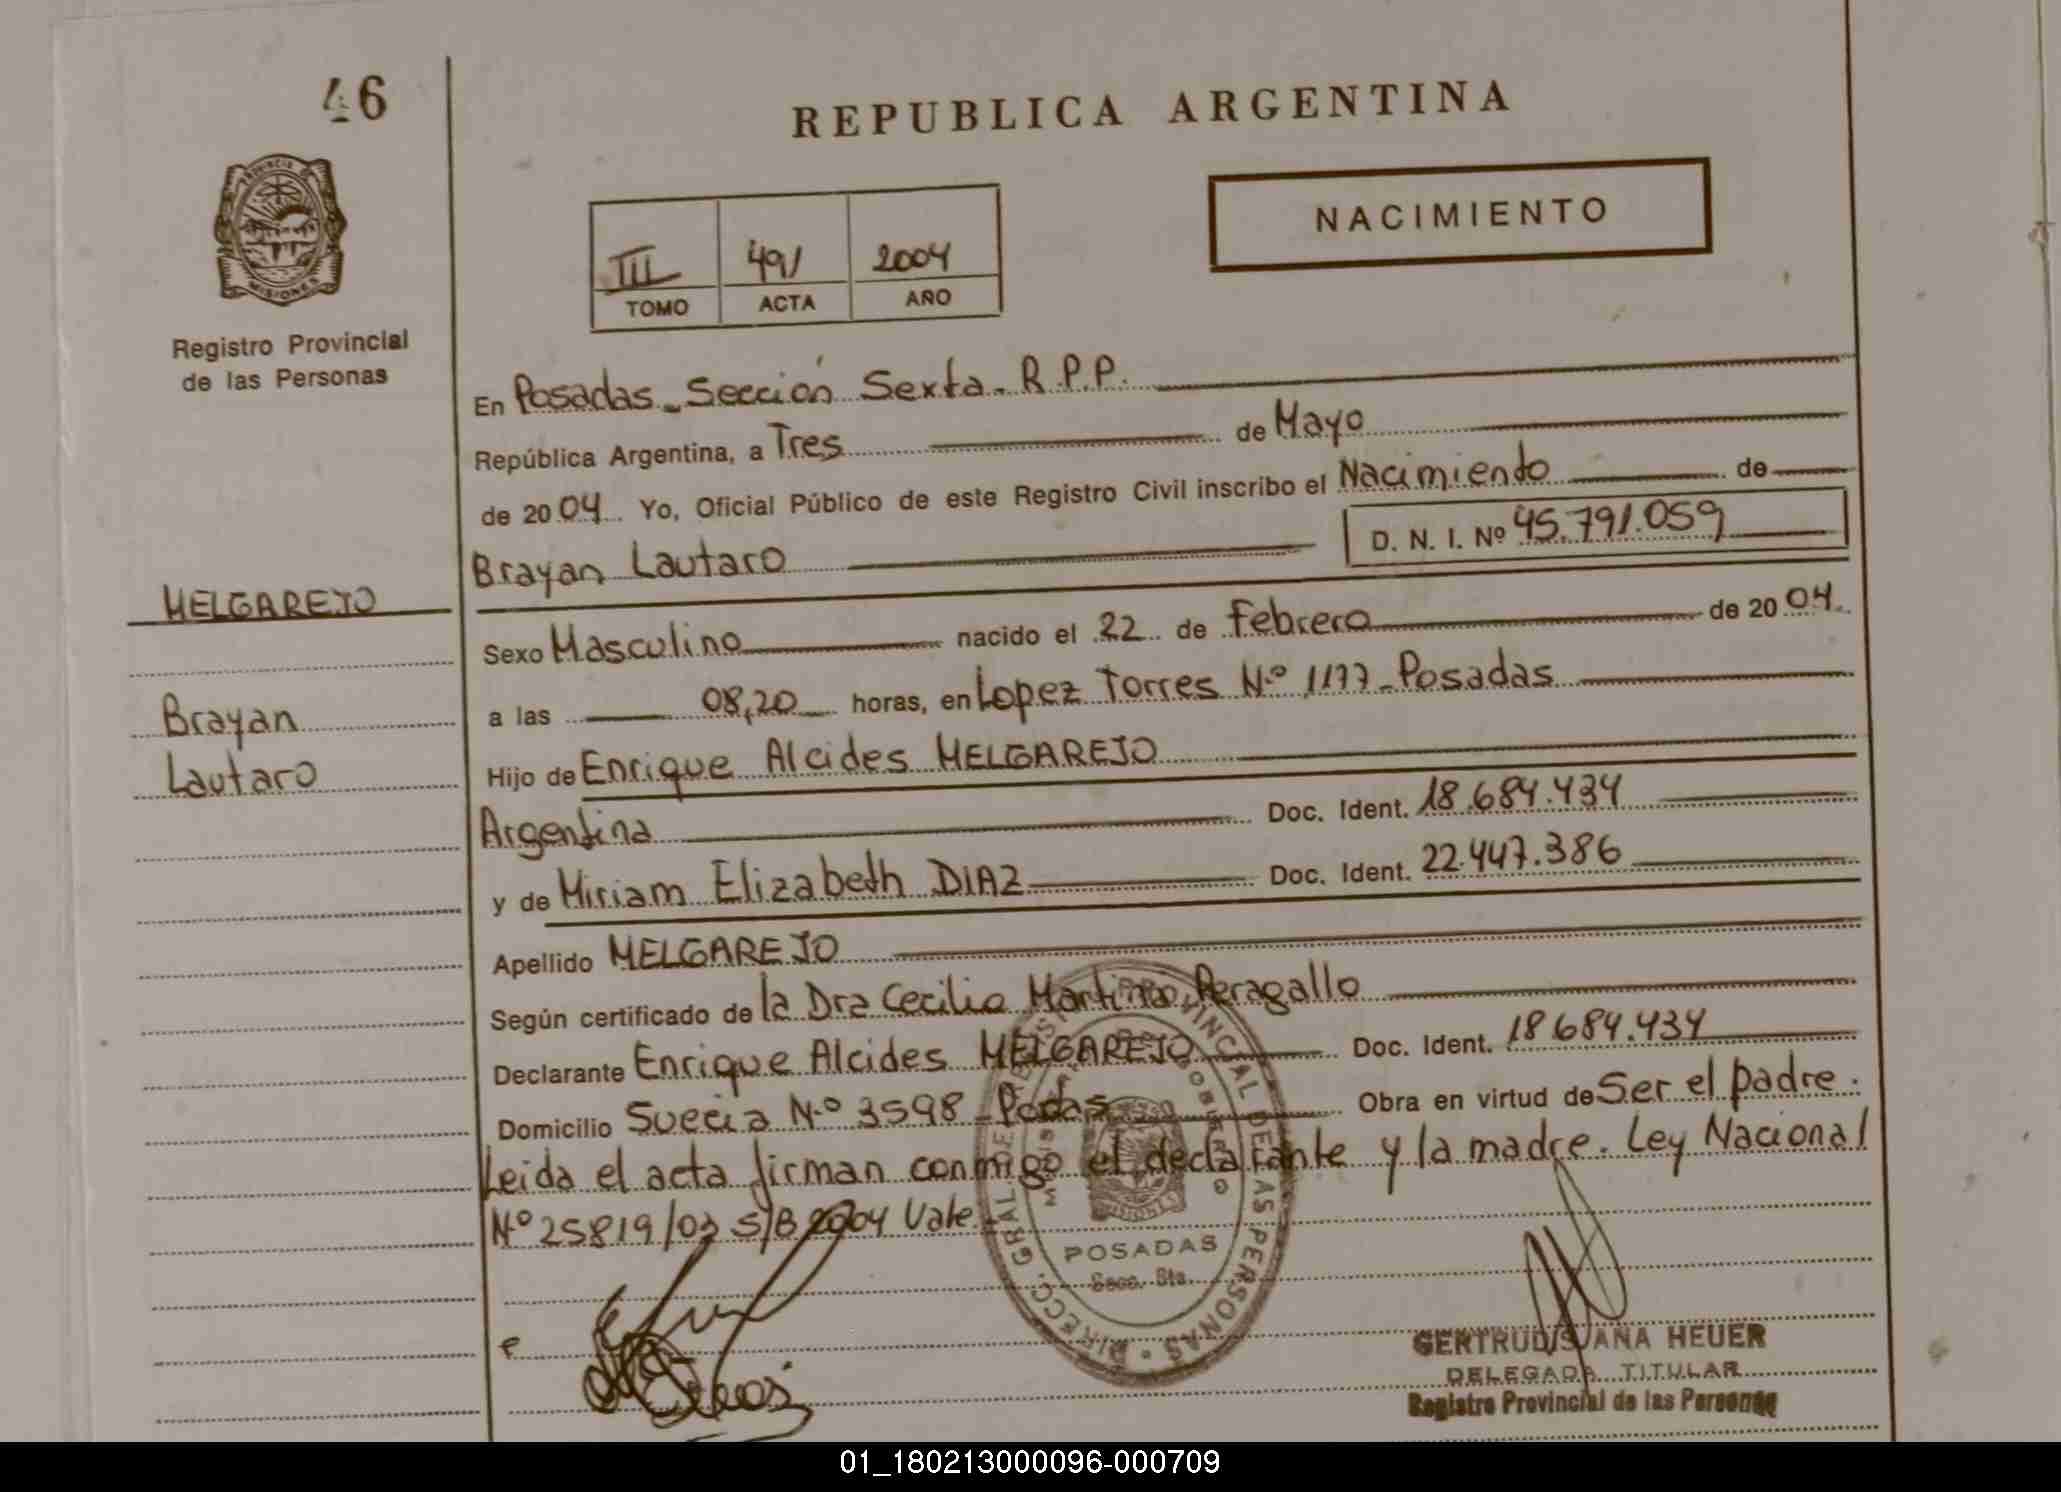 46
REPUBLICA ARGENTINA
NACIMIENTO
PROVINCIA D
MISIONES
III 491 2004
TOMO ACTA AÑO
Registro Provincial
de las Personas
En Posadas - Sección Sexta - R.P.P.
República Argentina, a Tres de Mayo
de 2004 Yo, Oficial Público de este Registro Civil inscribo el Nacimiento de
Brayan Lautaro D. N. I. Nº 45.791.059
MELGAREJO
Sexo Masculino nacido el 22 de Febrero de 2004
Brayan
a las 08,20 horas, en Lopez Torres Nº 1177 - Posadas
Lautaro
Hijo de Enrique Alcides MELGAREJO
Argentina Doc. Ident. 18.684.434
y de Miriam Elizabeth DIAZ Doc. Ident. 22.447.386
Apellido MELGAREJO
Según certificado de la Dra Cecilia Martina Peragallo
Declarante Enrique Alcides MELGAREJO Doc. Ident. 18.684.434
Domicilio Suecia Nº 3598 - Podas Obra en virtud de Ser el padre.
Leida el acta firman conmigo el declarante y la madre. Ley Nacional
Nº 25819/03 S/B 2004 Vale.
DIRECC. GRAL. DE PROVINCIAL DE LAS PERSONAS
POSADAS
Secc. 6ta.
GERTRUDIS ANA HEUER
DELEGADA TITULAR
Registro Provincial de las Personas
01_180213000096-000709